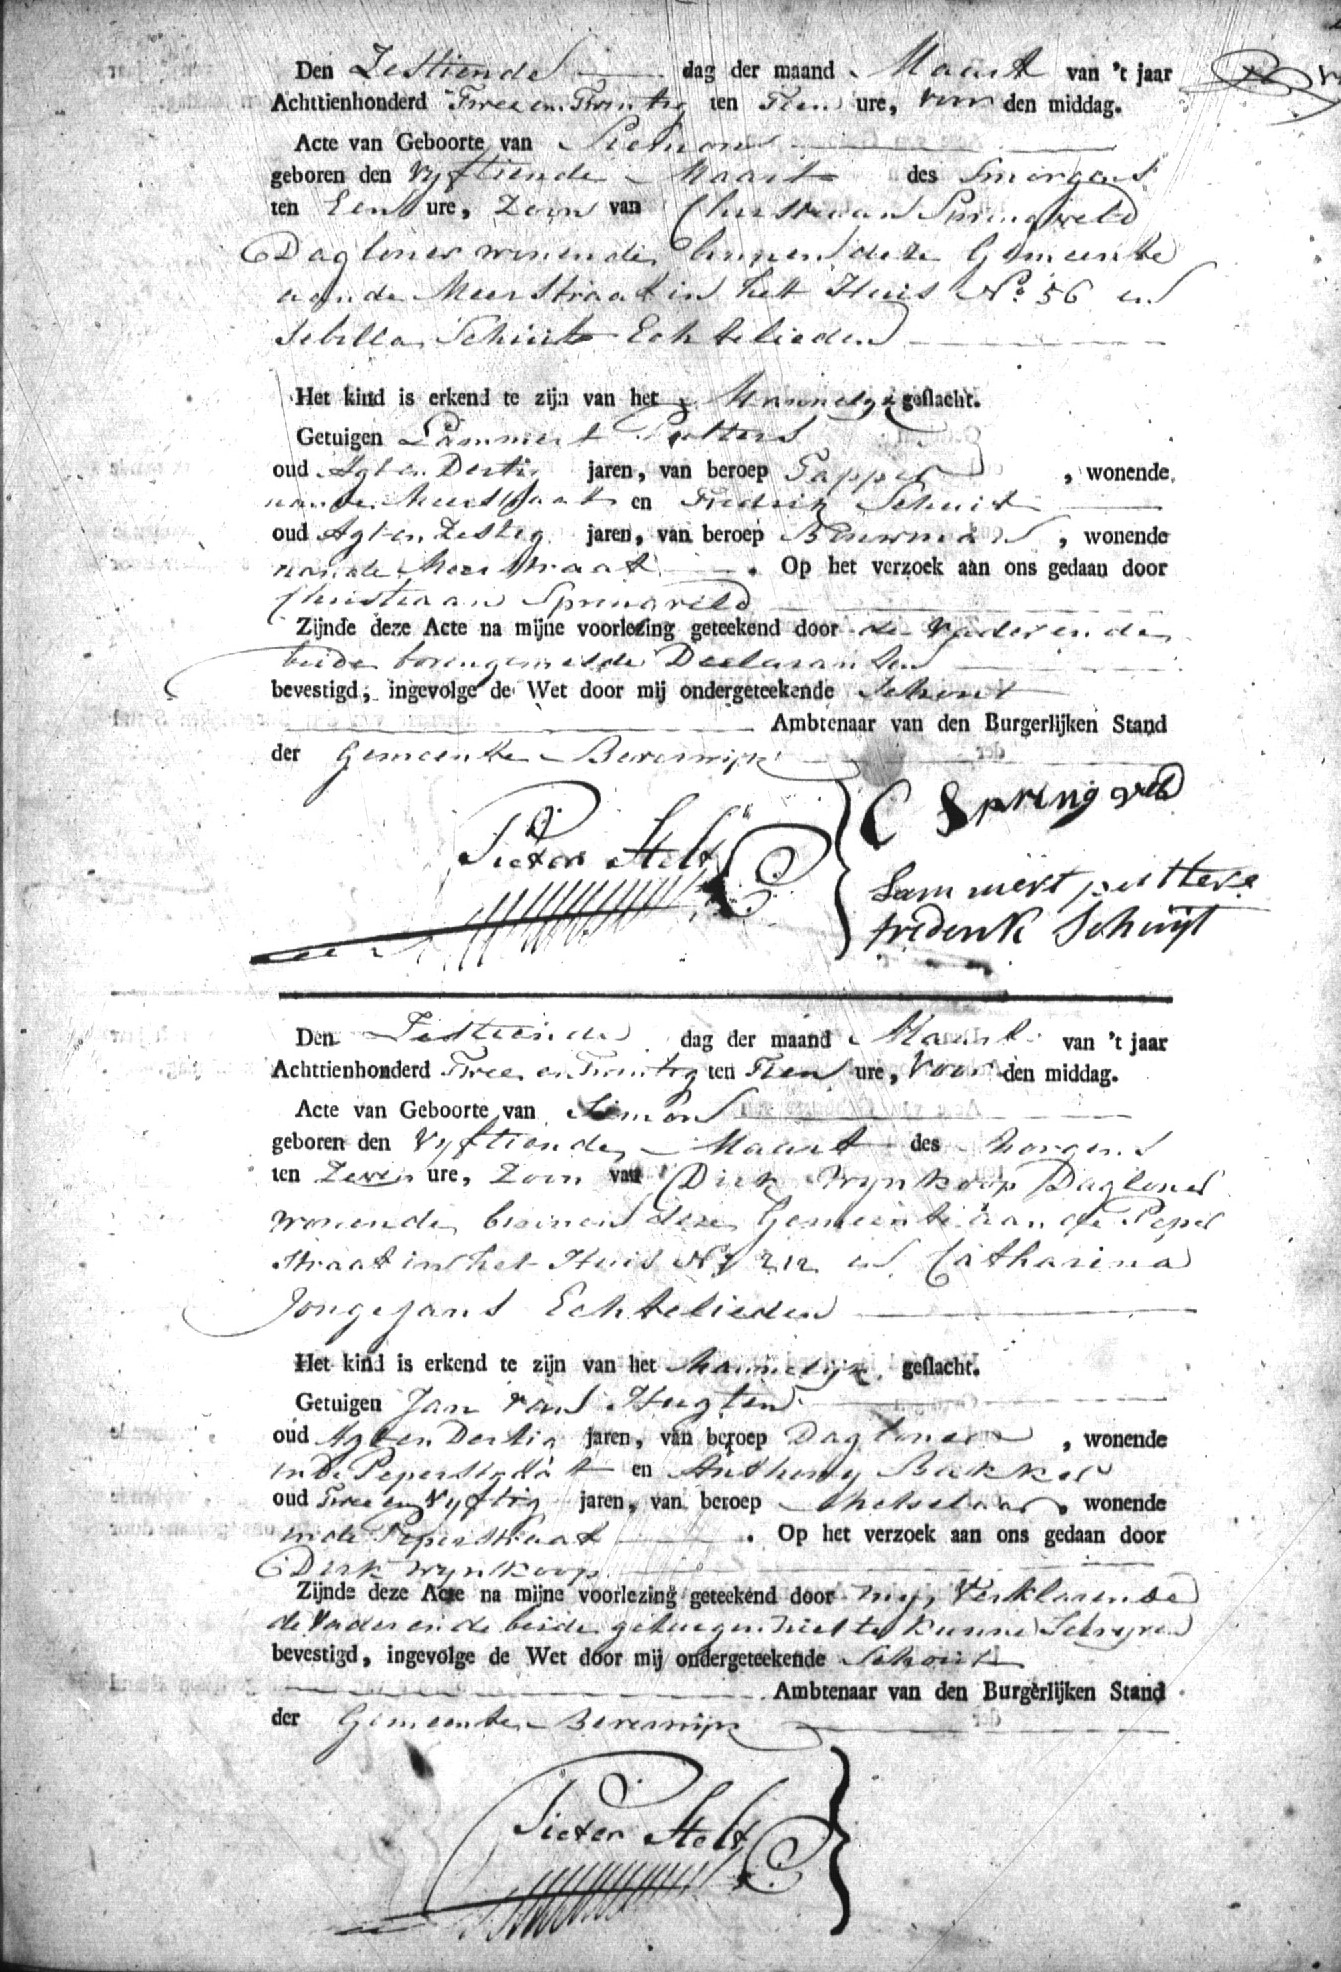 Den Zestiende dag der maand Maart van 't jaar
Achttienhonderd Twee en Twintig ten Tien ure, voor den middag.
Acte van Geboorte van Siemon
geboren den Vyftiende Maart des Smorgens
ten Een ure, Zoon van Christiaan Springveld
Dagloner wonende binnen deze Gemeente
aan de Meerstraat in het Huis No. 56 en
Sebilla Schuit Echtelieden
Het kind is erkend te zijn van het Mannelyk geslacht.
Getuigen Lammert Putters
oud Agt en Dertig jaren, van beroep Tapper, wonende
aan de Meerstraat en Fredrik Schuit
oud Agt en Zestig jaren, van beroep Bouwman, wonende
aan de Meerstraat. Op het verzoek aan ons gedaan door
Christiaan Springveld
Zijnde deze Acte na mijne voorlezing geteekend door de Vader en de
beide bovengemelde Declaranten
bevestigd, ingevolge de Wet door mij ondergeteekende Schout
Ambtenaar van den Burgerlijken Stand
der Gemeente Beverwijk
C Springveld
Pieter Stolk
Lammert putters
frederik Schuijt
Den Zestiende dag der maand Maart van 't jaar
Achttienhonderd Twee en Twintig ten Tien ure, Voor den middag.
Acte van Geboorte van Simon
geboren den Vyftiende Maart des Morgens
ten Zeven ure, Zoon van Dirk Wynkoop Dagloner
wonende binnen deze Gemeente aan de Peper
straat in het Huis No 212 en Catharina
Jongejans Echtelieden
Het kind is erkend te zijn van het Mannelijk geslacht.
Getuigen Jan van Hugten
oud Agt en Dertig jaren, van beroep Dagloner, wonende
in de Peperstraat en Anthony Bakker
oud Twee en Vyftig jaren, van beroep Metselaar, wonende
in de Peperstraat. Op het verzoek aan ons gedaan door
Dirk Wynkoop
Zijnde deze Acte na mijne voorlezing geteekend door my, Verklarende
de Vader en de beide getuigen niet te kunnen Schryven
bevestigd, ingevolge de Wet door mij ondergeteekende Schout
Ambtenaar van den Burgerlijken Stand
der Gemeente Beverwijk
Pieter Stolk